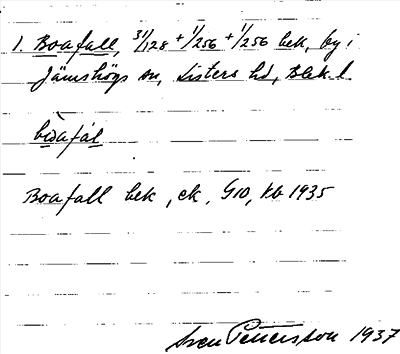 1. Boafall, 31/128 + 1/256 + 1/256 hek, by i
Jämshögs sn, Listers hd, Blek. l.
bò̀afal
Boafall hek, ek. G10, kb 1935
Sven Pettersson 1937